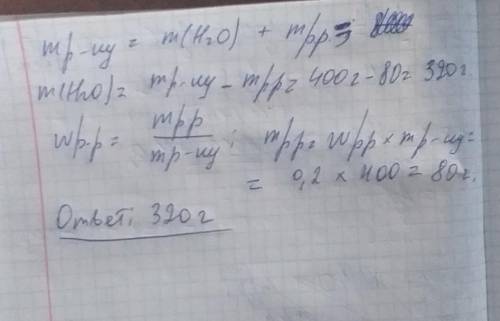 mр-иу = m(H₂O) + mрр.=;
m(H₂O)= mр-иу - mрр= 400г-80= 320г.
wр.р= mрр/mр-иу; mрр= wрр × mр-иу=
= 0,2 × 400 = 80г.
Ответ: 320 г